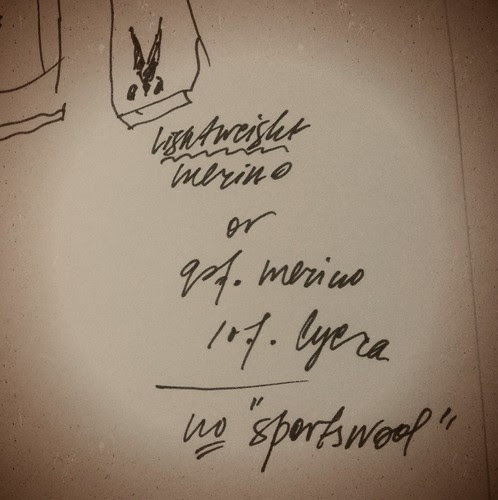 lightweight
merino
or
90% merino
10% lycra
no "sportswool"